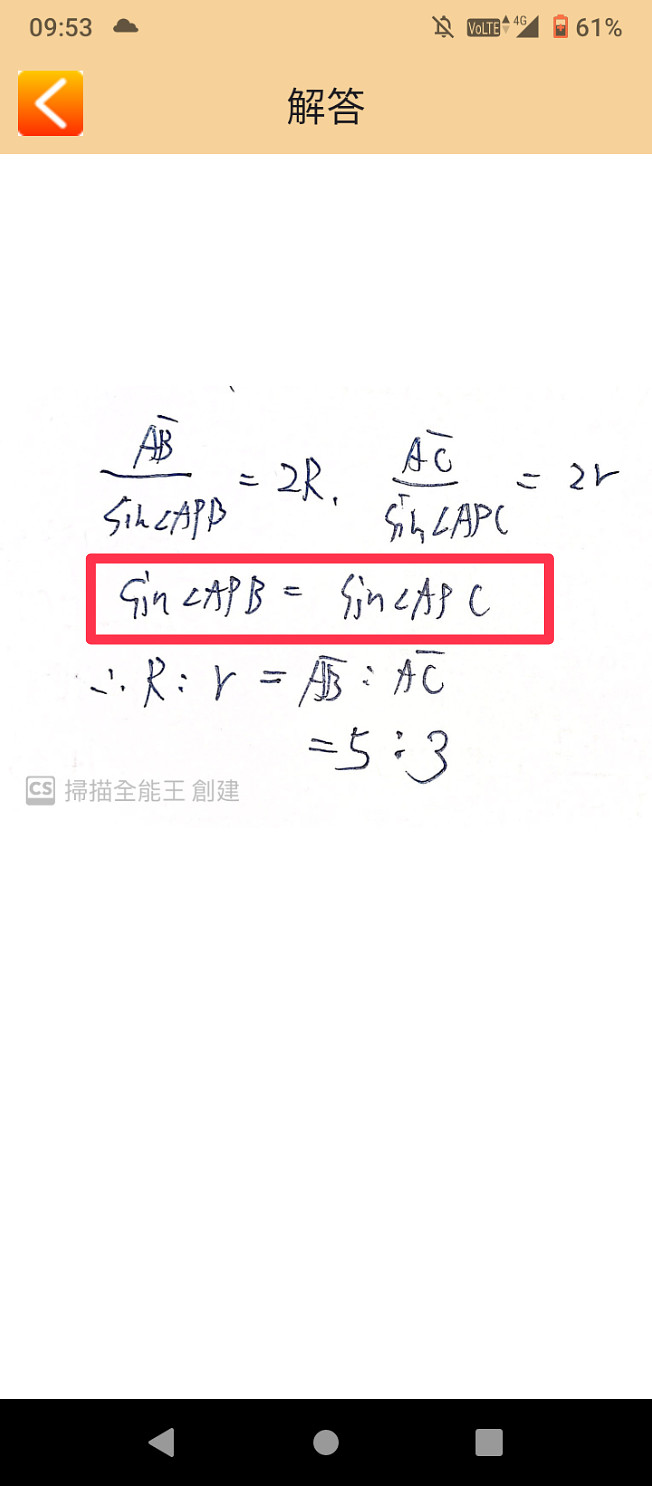 09:53 VoLTE 4G 61%
解答
A̅B̅/sin∠APB = 2R, A̅C̅/sin∠APC = 2r
sin∠APB = sin∠APC
∴ R : r = A̅B̅ : A̅C̅
= 5 : 3
CS 掃描全能王 創建